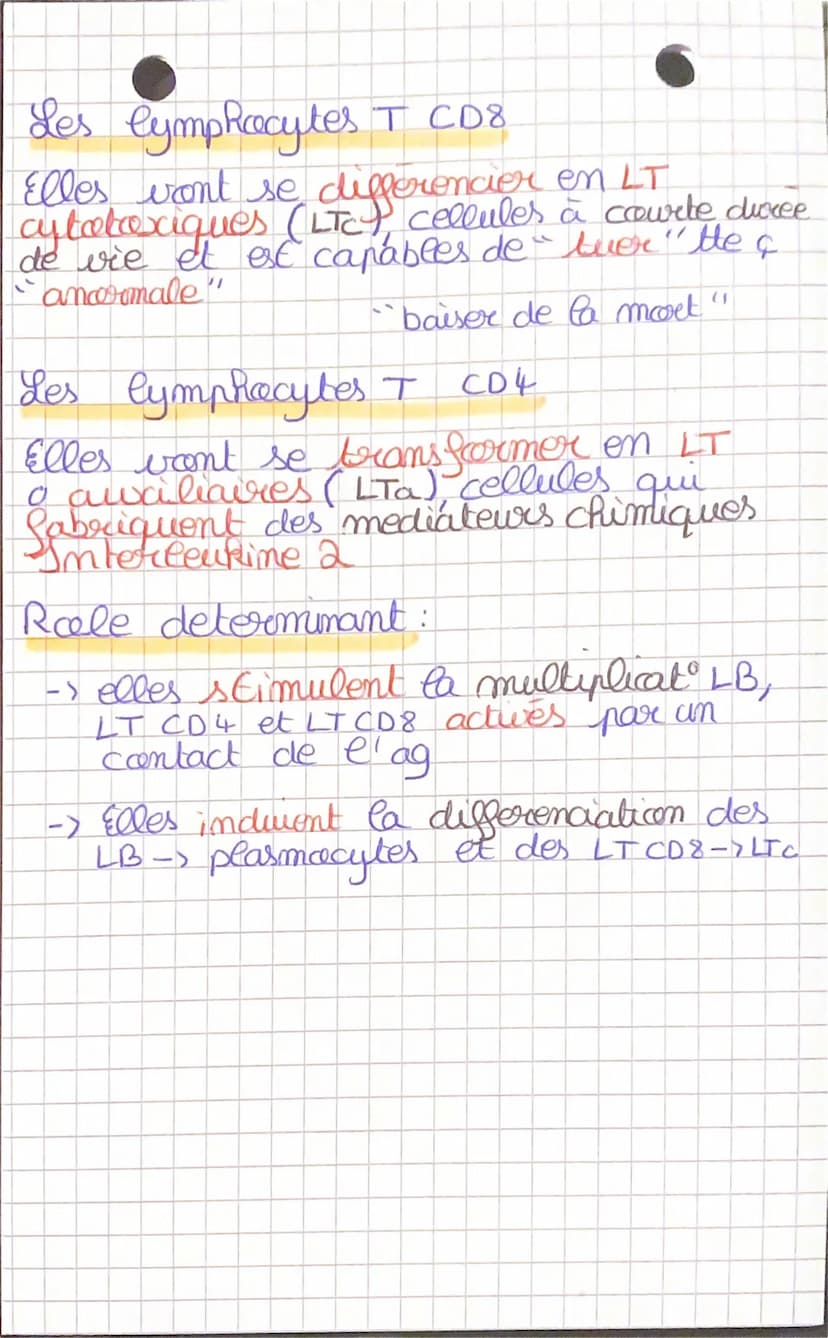 Les lymphocytes T CD8
Elles vont se différencier en LT
cytotoxiques (LTc), cellules à courte durée
de vie et est capables de "tuer" tte ç
"anormale"
"baiser de la mort"
Les lymphocytes T CD4
Elles vont se transformer en LT
auxiliaires (LTa), cellules qui
fabriquent des mediateurs chimiques
Interleukine 2
Role determinant :
-> elles stimulent la multiplicat° LB,
LT CD4 et LT CD8 activés par un
contact de l'ag
-> Elles induient la differenciation des
LB -> plasmocytes et des LT CD8 -> LTc